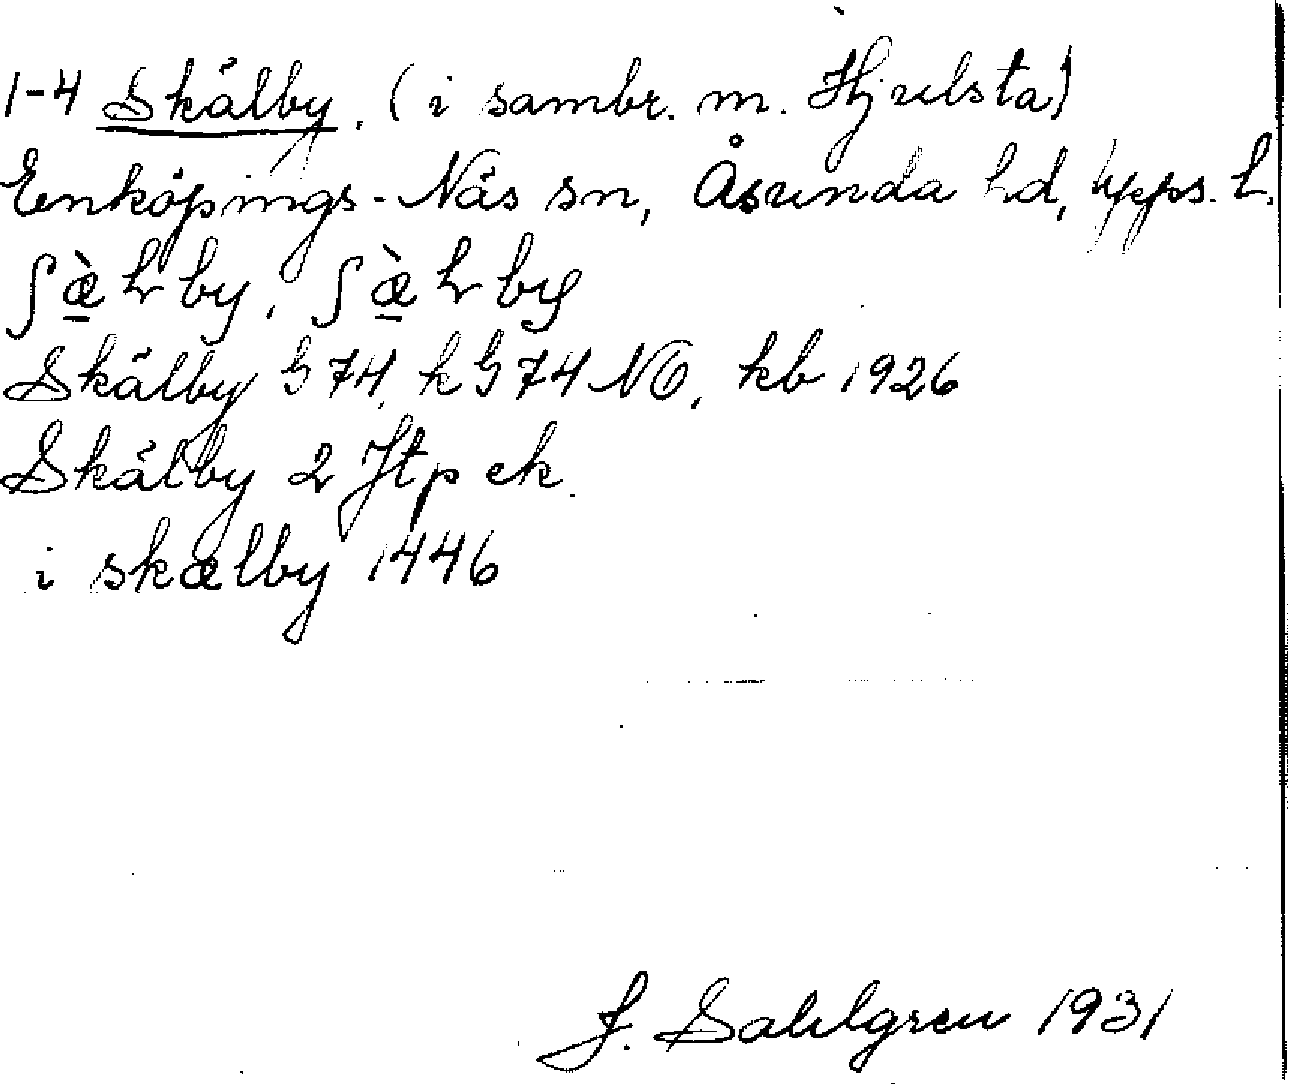 1-4 Skälby. (i sambr. m. Hjulsta)
Enköpings-Näs sn, Åsunda hd, Upps. l.
ʃæ̲̀ɫby, ʃæ̲̀ɫby
Skälby G 74, k G 74 NO, kb 1926
Skälby 2 Jtp ek.
i skælby 1446
J. Sahlgren 1931